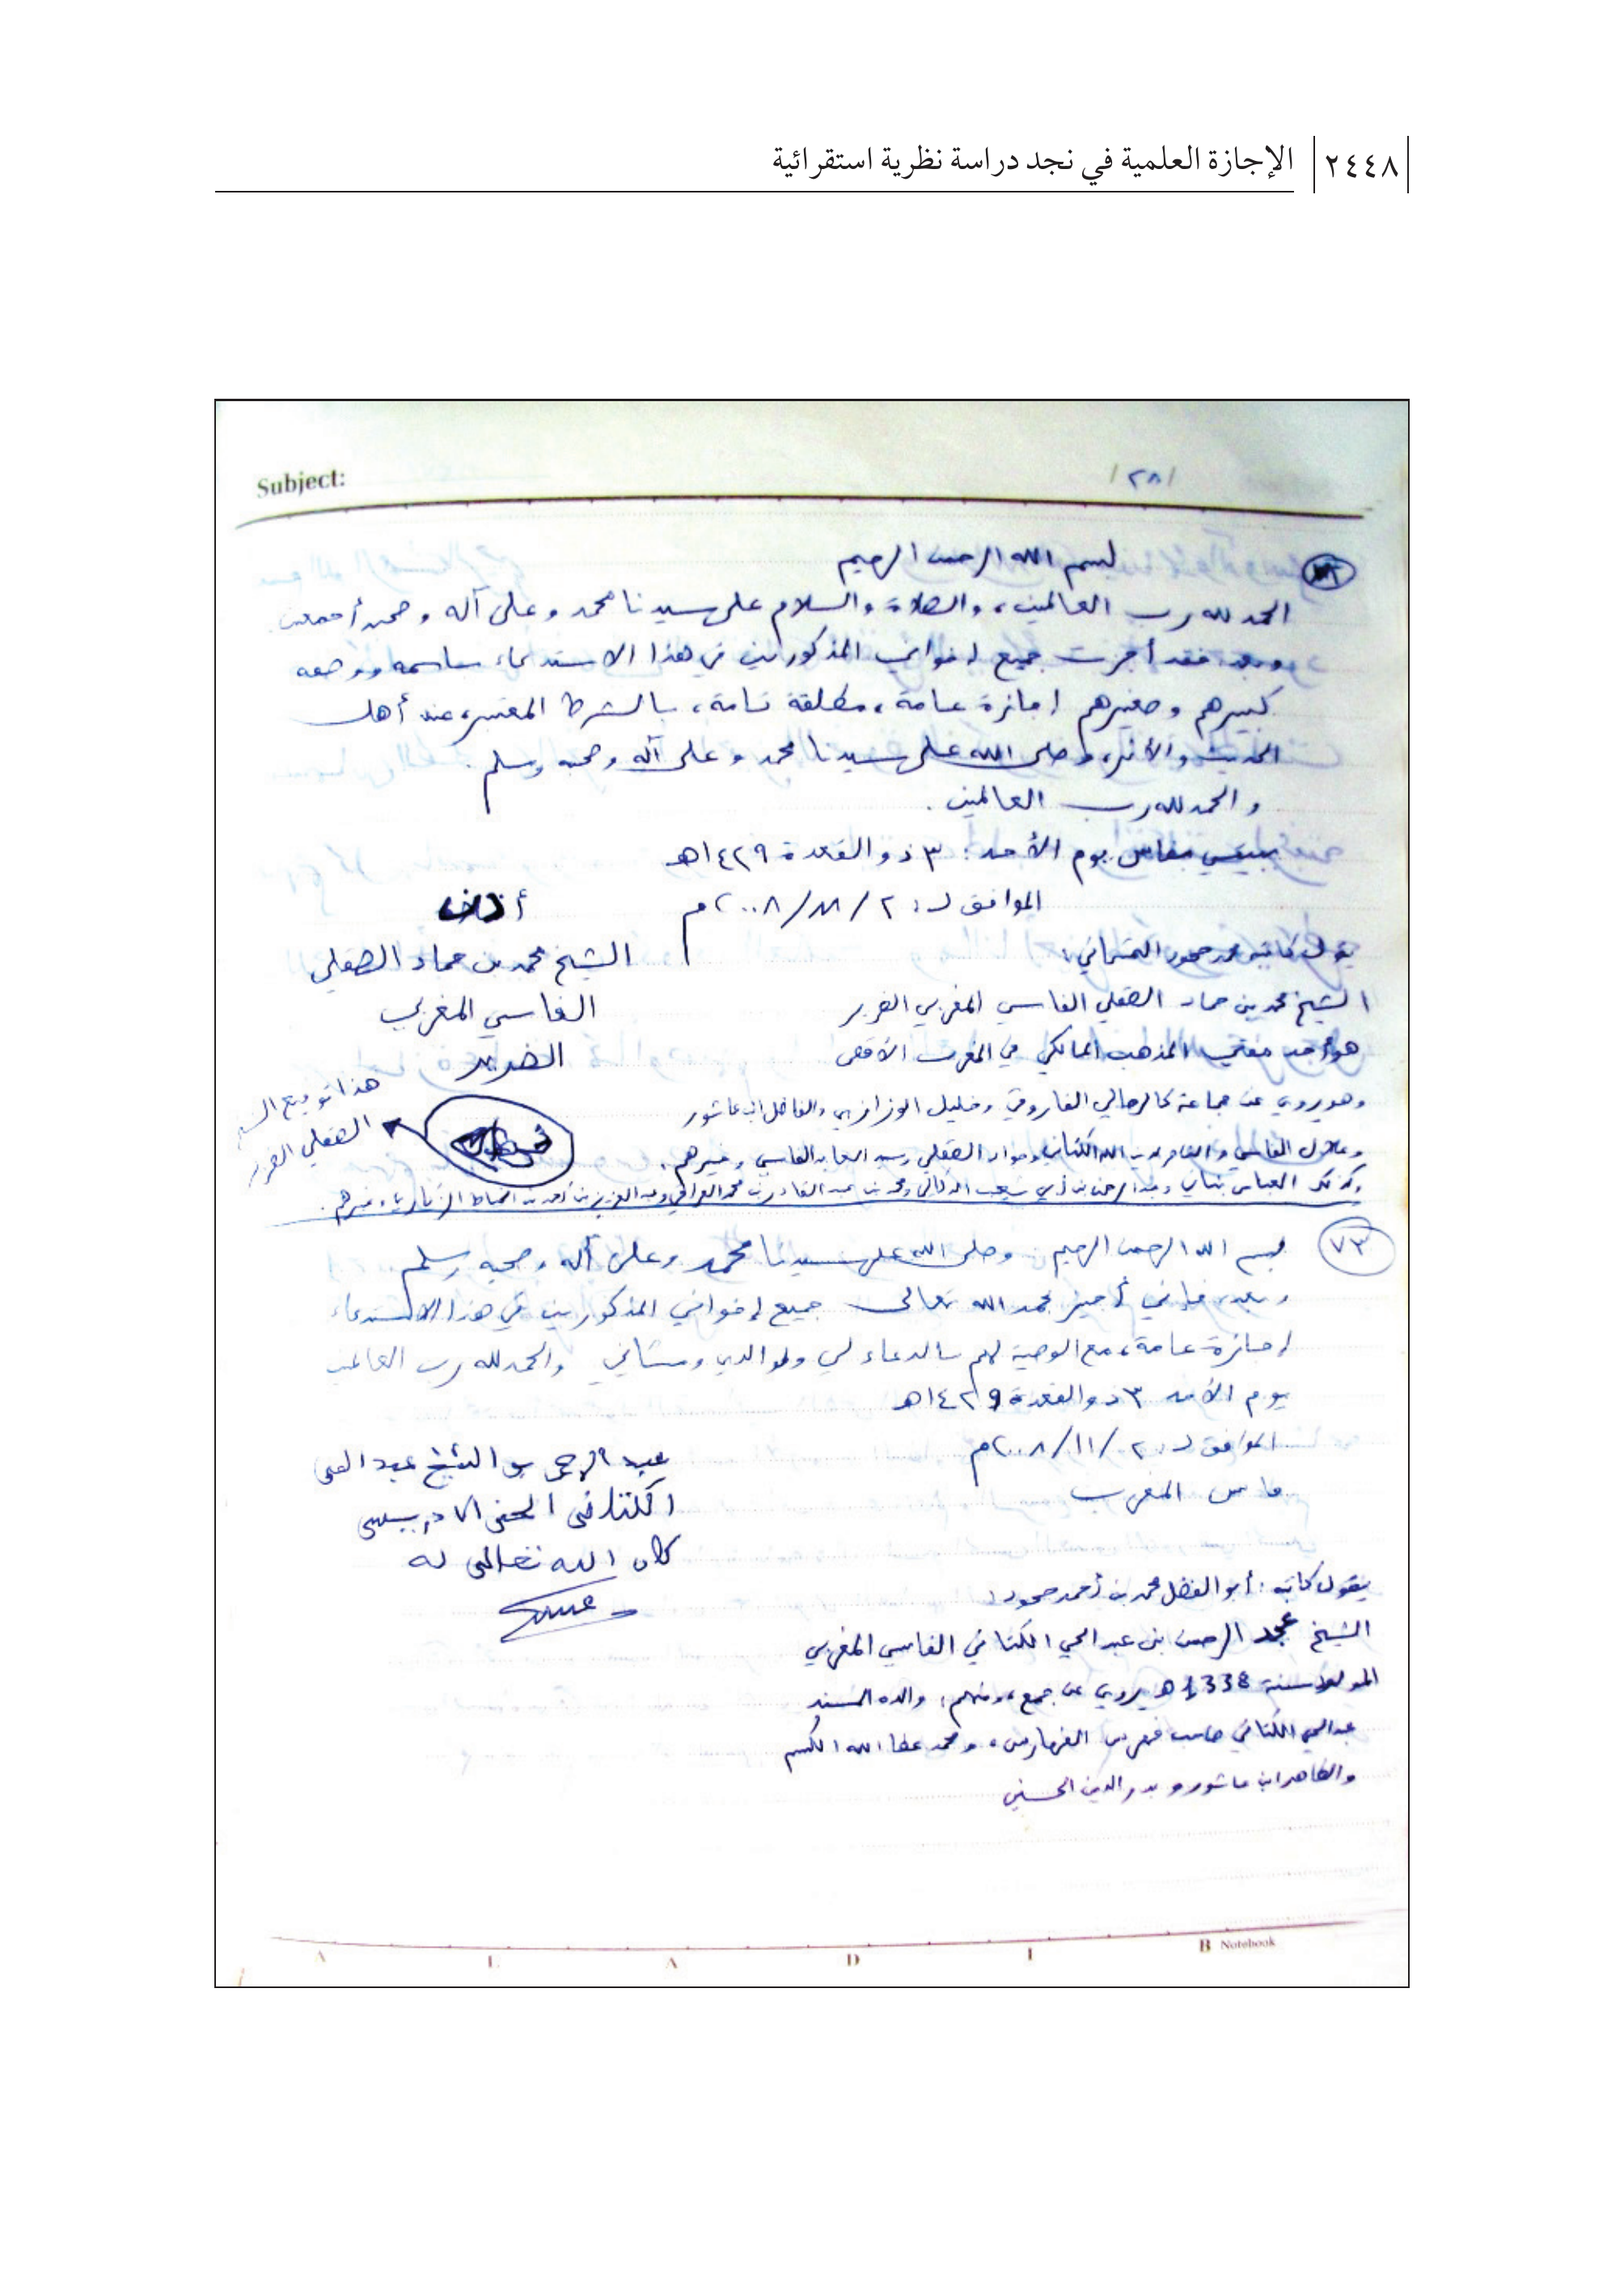 ٢٤٤٨ الإجازة العلمية في نجد دراسة نظرية استقرائية
Subject:
/٢٨/
بسم الله الرحمن الرحيم
الحمد لله رب العالمين، والصلاة والسلام على سيدنا محمد وعلى آله وصحبه أجمعين
وبعد: فقد أجزت جميع إخواني المذكورين في هذا الاستدعاء باسمه ووصفه
كبيرهم وصغيرهم إجازة عامة، مطلقة تامة، بالشرط المعتبر عند أهل
الحديث والأثر، وصلى الله على سيدنا محمد وعلى آله وصحبه وسلم.
والحمد لله رب العالمين.
بفاس يوم الأحد: ٣ ذو القعدة ١٤٢٩هـ
الموافق لـ: ٢ / / ٢٠٠٨م
الشيخ محمد بن حماد الصقلي
الفاسي المغربي
الضرير
هذا توقيع
الصقلي الضرير
يقول كاتبه محمد حمود
الشيخ محمد بن حماد الصقلي الفاسي المغربي الضرير
هو أحد مفتي المذهب المالكي في المغرب الأقصى
وهو يروي عن جماعة الفاروقي وخليل والفاضل ابن عاشور
الفاسي الكتاني وجواد الصقلي الفاسي وغيرهم.
العباس بناني وعبد الرحمن بن شعيب الدكالي ومحمد بن عبد القادر بن محمد العراقي وعبد العزيز بن أحمد وغيرهم.
٧٣
بسم الله الرحمن الرحيم وصلى الله على سيدنا محمد وعلى آله وصحبه وسلم
وبعد، فإنني أجيز بحمد الله تعالى جميع إخواني المذكورين في هذا الاستدعاء
إجازة عامة، مع الوصية لهم بالدعاء لي ولوالدي ومشائخي والحمد لله رب العالمين
يوم الأحد ٣ ذو القعدة ١٤٢٩هـ
الموافق لـ ٢ /١١/ ٢٠٠٨م
فاس المغرب
عبد الرحمن بن الشيخ عبد الحي
الكتاني الحسني الادريسي
كان الله تعالى له
يقول كاتبه: أبو الفضل محمد بن أحمد حمود:
الشيخ عبد الرحمن بن عبد الحي الكتاني الفاسي المغربي
المولود سنة 1338 هـ يروي عن جمع، ومنهم: والده المسند
عبد الحي الكتاني صاحب فهرس الفهارس، ومحمد عطا الله الكسم
والطاهر ابن عاشور و بدر الدين الحسني
B Notebook